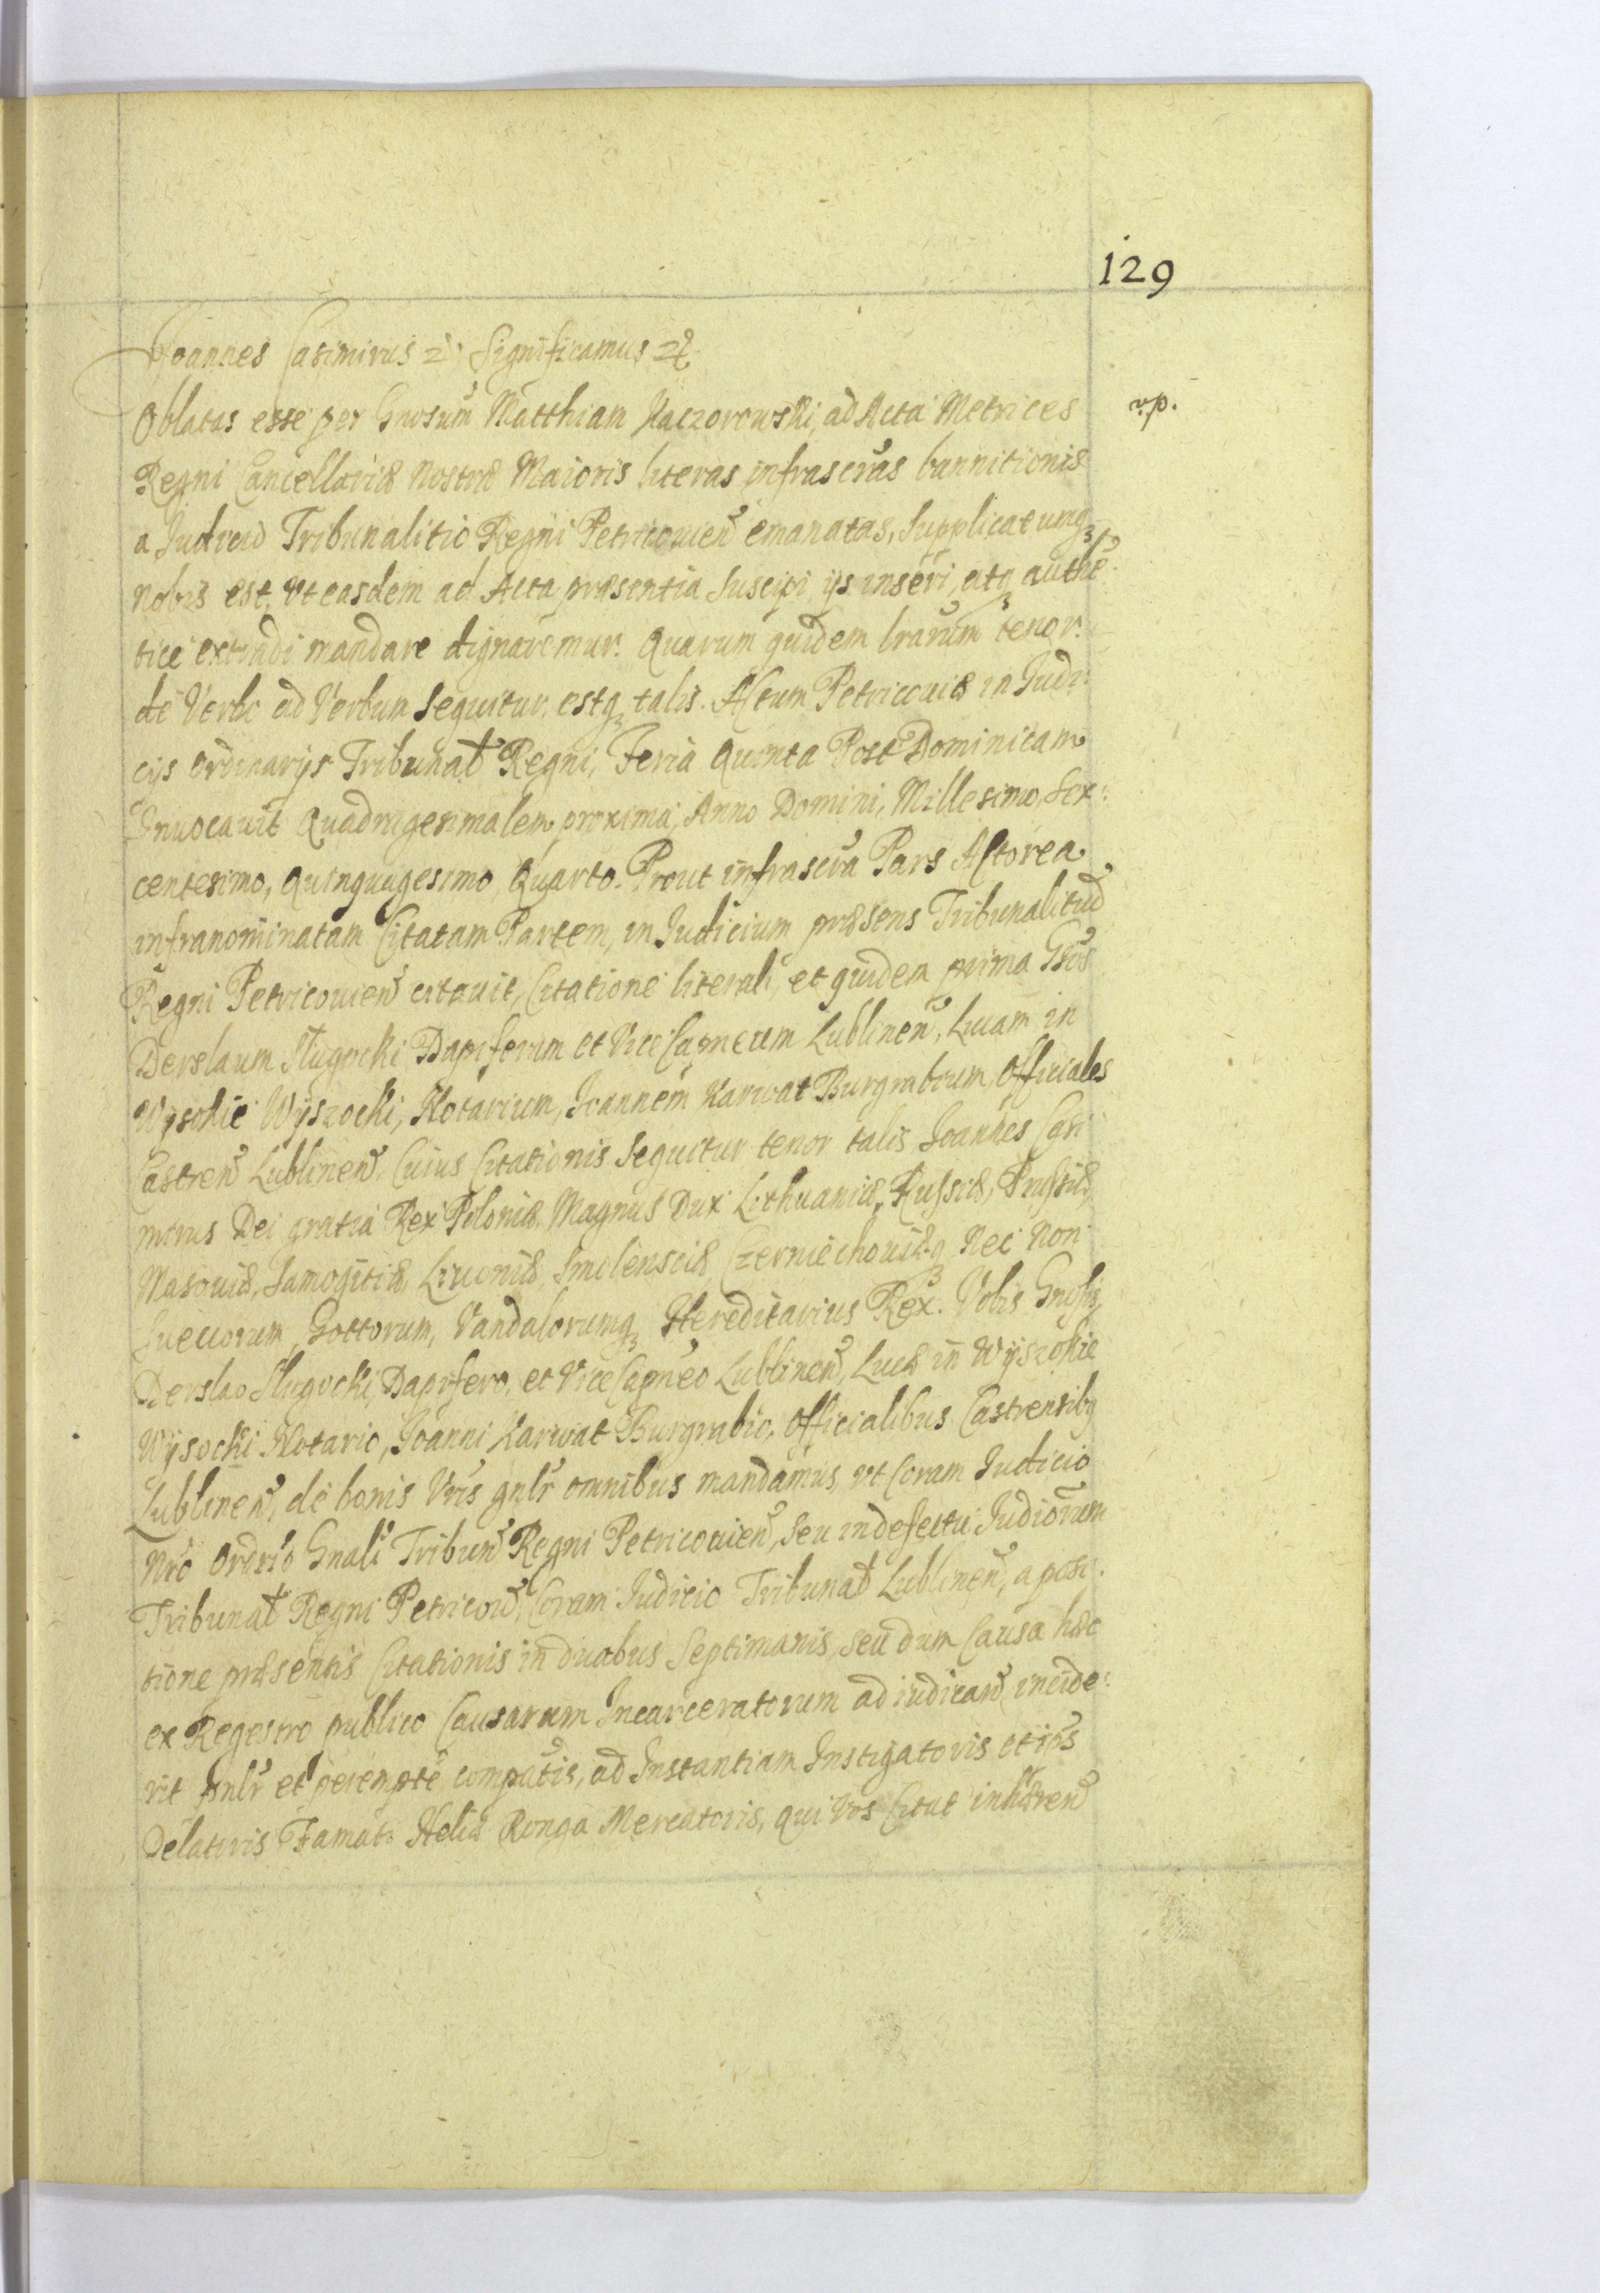 129
Joannes Casimirus &c. Significamus &c.
Oblatas esse per Gnosum Matthiam Kaczorowski, ad Acta Metrices
vp.
Regni Cancellariæ Nostræ Maioris literas infrascras bannitionis
a Judicio Tribunalitio Regni Petricouien emanatas, Supplicatumq3
nobis est, Vt easdem ad Acta præsentia Suscipi ijs inseri, atq3 authē
tice extradi mandare dignaremur. Quarum quidem lrarum tenor
de Verbo ad Verbum Sequitur, estq3 talis. Actum Petricouiæ in Judi:
cijs Ordinarijs Tribunal Regni, Feria Quinta Post Dominicam
Inuocauit Quadragesimalem proxima, Anno Domini, Millesimo, Sex:
centesimo, Quinquagesimo Quarto. Prout infrascra Pars Actorea
infranominatam Citatam Partem, in Judicium præsens Tribunalitiu
Regni Petricouien citauit, Citatione literali, et quidem prima Gsos
Derslaum Slugocki Dapiferum et Vice Capneum Lublinen, Lucam in
Wysokie Wyszocki, Notarium, Joannem Karwat Burgrabium, Officiales
Castren Lublinen, Cuius Citationis Sequitur tenor talis Joannes Casi
mirus Dei gratia Rex Poloniæ, Magnus Dux Lithuaniæ, Russiæ, Prussiæ,
Masouiæ, Samogitiæ, Liuoniæ, Smolensciæ, Czerniechouiæq3 Nec Non
Sueuorum, Gottorum, Vandalorumq3 Hereditarius Rex. Vobis Gnosis
Derslao Slugocki, Dapifero, et Vice Capneo Lublinen, Lucæ in Wyszokie
Wysocki Notario, Joanni Karwat Burgrabio, Officialibus Castrensibq
Lublinen, de bonis Vris gnlr omnibus mandamus, vt Coram Judicio
Nro Ordrio Gnali Tribun Regni Petricouien, Seu in defectu Judiorum
Tribunal Regni Petricou, Coram Judicio Tribunal Lublinen, a posi:
tione præsentis Citationis in duabus Septimanis, seu dum Causa hæc
ex Regestro publico Causarum Incarceratorum ad iudicand incide:
rit pnlr et perempte compatis, ad Instantiam Instigatoris et ips
Delatoris Famat. Heliæ Ronga Mercatoris, qui Vos Citat inhæren